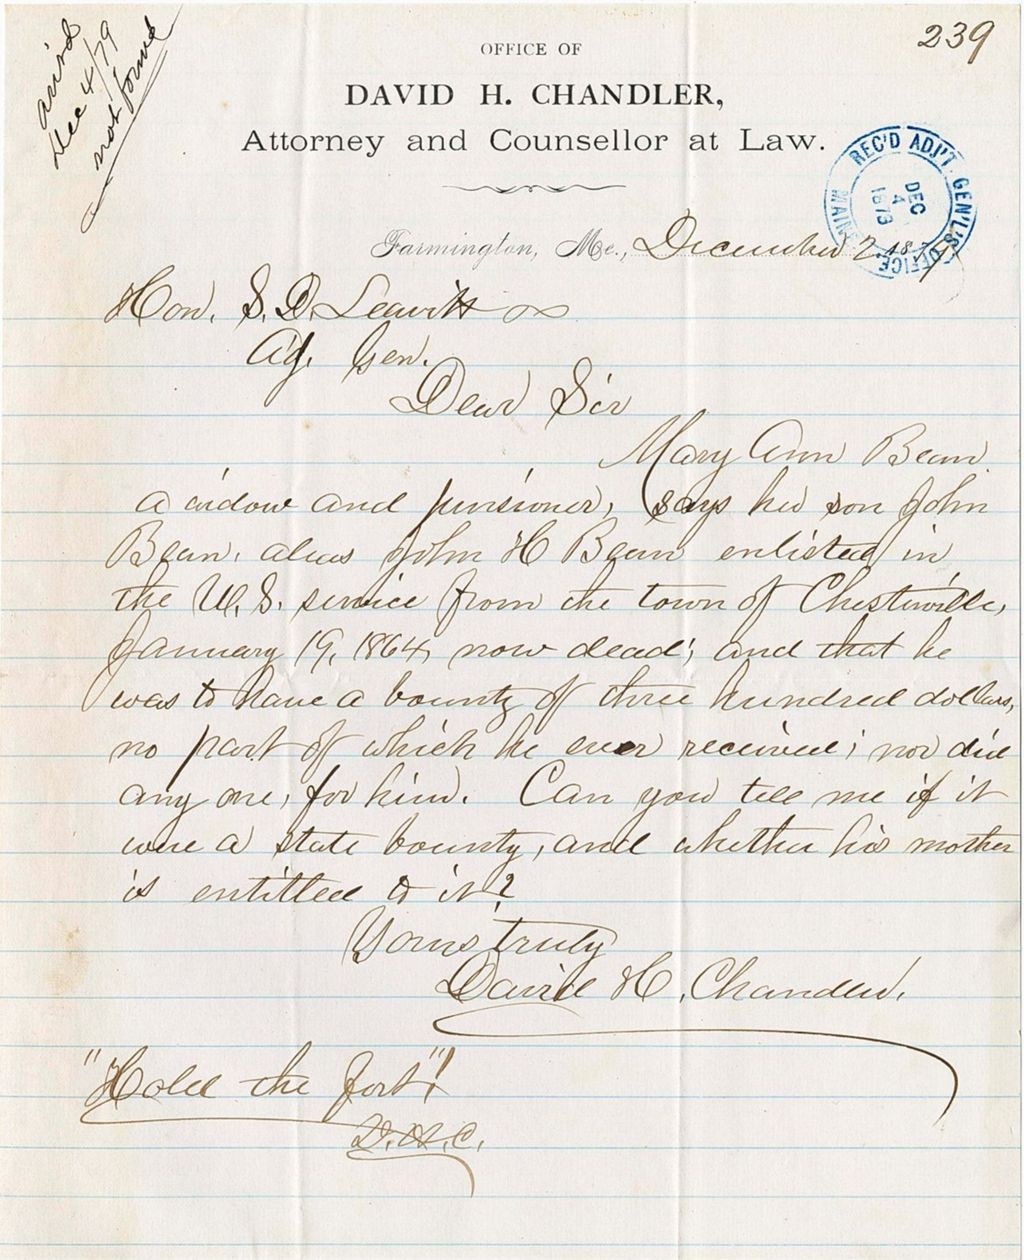 239
ans'd
Dec 4/79
not found
OFFICE OF
DAVID H. CHANDLER,
Attorney and Counsellor at Law.
REC'D ADJ'T. GEN'L'S OFFICE
MAINE
DEC
4
1879
Farmington, Me., December 2 1879
Hon. S. D. Leavitt
Ag. Gen.
Dear Sir
Mary Ann Bean
a widow and pensioner, says her son John
Bean, alias John H Bean enlisted in
the U, S. service from the town of Chesterville,
January 19, 1864, now dead; and that he
was to have a bounty of three hundred dollars,
no part of which he ever received; nor did
any one, for him. Can you tell me if it
were a state bounty, and whether his mother
is entitled to it?
Yours truly
David H. Chandler.
"Hold the fort"!
D.H.C.